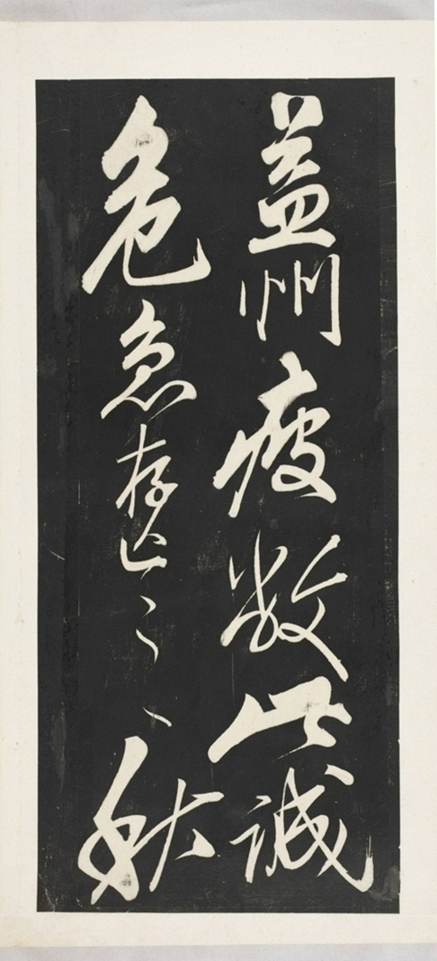 益州疲敝此誠
危急存亡之秋